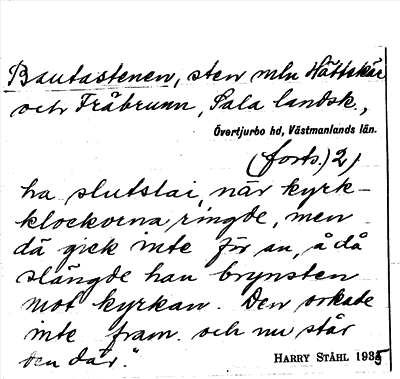 Bautastenen, sten mln Hättskär
och Fråbrunn, Sala landsk.,
Övertjurbo hd, Västmanlands län.
(forts.) 2)
ha slutslai, när kyrk-
klockorna ringde, men
dä gick inte för an, å då
slängde han brynsten
mot kyrkan. Den orkade
inte fram och nu står
den där."
HARRY STÅHL 1935